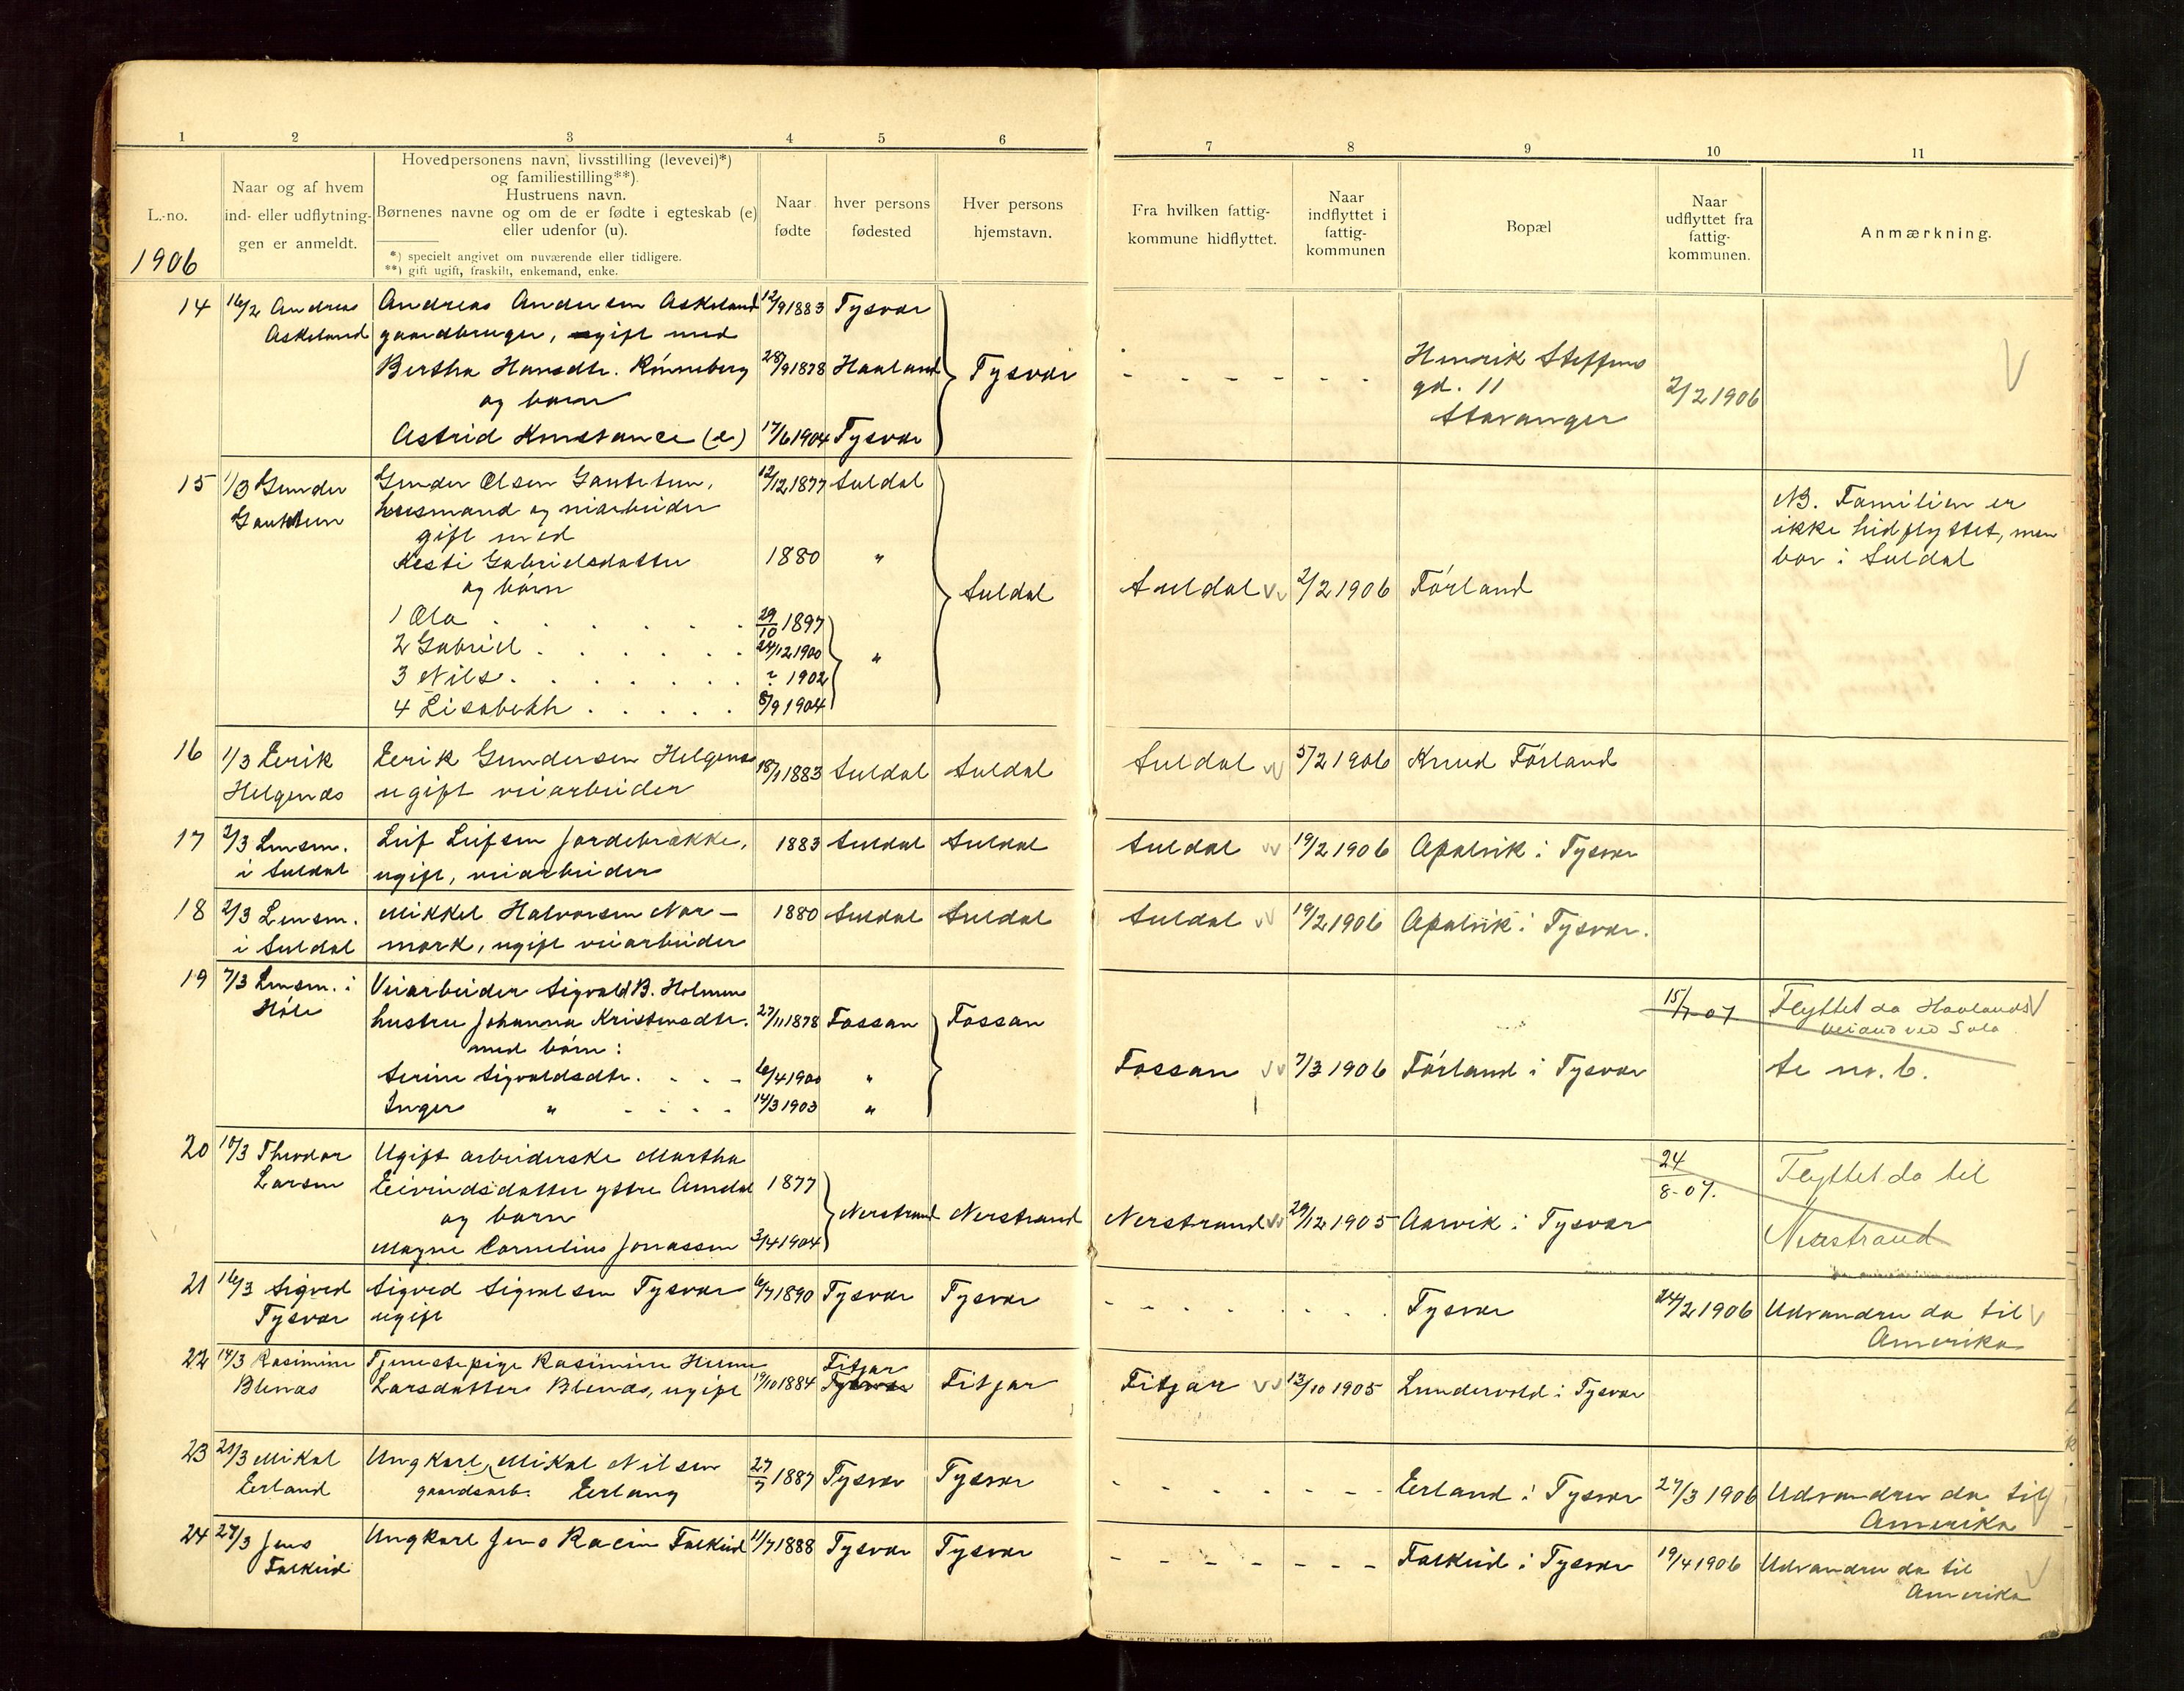 1 2 3 4 5 6 7 8 9 10 11
L.-no.
1906
Naar og af hvem
ind- eller udflytnin-
gen er anmeldt.
Hovedpersonens navn, livsstilling (levevei)*)
og familiestilling**).
Hustruens navn.
Børnenes navne og om de er fødte i egteskab (e)
eller udenfor (u).
*) specielt angivet om nuværende eller tidligere.
**) gift ugift, fraskilt, enkemand, enke.
Naar
fødte
hver persons
fødested
Hver persons
hjemstavn.
Fra hvilken fattig-
kommune hidflyttet.
Naar
indflyttet i
fattig-
kommunen
Bopæl
Naar
udflyttet fra
fattig-
kommunen.
Anmærkning.
14 16/2 Andreas Andreas Andersen Askeland 12/9 1883 Tysvær
Askeland gaardbruger, gift med
Bertha Hansdtr. Rønneberg 28/9 1878 Haaland Tysvær Henrik Steffens
og barn gd. 11 2/2 1906
Astrid Konstance (e) 17/6 1904 Tysvær Stavanger
15 1/3 Gunder Gunder Olsen Gautetun, 12/12 1877 Suldal
Gautetun husmand og miarbeider
gift med
Kesti Gabrielsdatter 1880 "
og børn Suldal Suldal 2/2 1906 Førland
1 Ola 29/10 1897
2 Gabriel 24/12 1900
3 Nils ? 1902 "
4 Lisabeth 8/9 1904
NB. Familien er
ikke hidflyttet, men
bor i Suldal
16 1/3 Eerik Eerik Gundersen Helgenæs 18/1 1883 Suldal Suldal Suldal 5/2 1906 Knud Førland
Helgenæs ugift veiarbeider
17 2/3 Lensm. Leif Leifsen Jordebrække, 1883 Suldal Suldal Suldal 19/2 1906 Apalvik i Tysvær
i Suldal ugift, veiarbeider
18 2/3 Lensm. Mikkel Halvorsen Nor- 1880 Suldal Suldal Suldal 19/2 1906 Apalvik i Tysvær.
i Suldal mark, ugift veiarbeider
19 7/3 Lensm. i Veiarbeider Sigvald B. Holmen 15/7-07 Flyttet da Haalands
Høle hustru Johanna Kristensdtr. 27/11 1878 Fossan Fossan
med børn: Fossan 7/3 1906 Førland i Tysvær Se no. 6.
Serine Sigvaldsdtr. 6/4 1900 "
Inger " 14/3 1903 "
20 10/3 Theodor Ugift arbeiderske Martha 24/8-07. Flyttet da til
Larsen Eivindsdatter ystre Amdal 1877
og barn Nerstrand Nerstrand Nerstrand 29/12 1905 Aarvik i Tysvær Nerstrand
Magne Cornelius Jonassen 3/4 1904
21 16/3 Sigved Sigved Sigvalsen Tysvær 6/7 1890 Tysvær Tysvær Tysvær 24/2 1906 Udvandrer da til
Tysvær ugift Amerika
22 14/3 Rasimine Tjenestepige Rasimine Fitjar
Blenæs Larsdatter Blenæs, ugift 19/10 1884 Tysvær Fitjar Fitjar 13/10 1905 Lundervold i Tysvær
23 21/3 Mikal Ungkarl Mikal Nilsen 27/7 1887 Tysvær Tysvær Erland i Tysvær 27/3 1906 Udvandrer da til
Erland gaardsarb. Erland Amerika
24 27/3 Jens Ungkarl Jens Racin Falkeid 11/7 1888 Tysvær Tysvær Falkeid i Tysvær 19/4 1906 Udvandrer da til
Falkeid Amerika